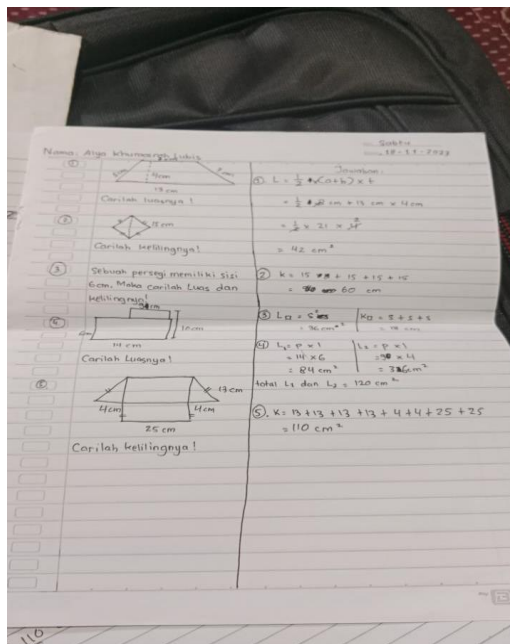 Nama: Alya
Sabtu
18-11-2023
①
4cm
13 cm
Carilah luasnya!
②
15 cm
Carilah kelilingnya!
③ Sebuah persegi memiliki sisi
6cm. Maka carilah Luas dan
kelilingnya!
④
10cm
14 cm
Carilah Luasnya!
⑤
13cm
4cm
4cm
25 cm
Carilah kelilingnya!
Jawaban:
① L = 1/2 × (a+b) × t
= 1/2 × 8 cm + 13 cm × 4cm
= 1/2 × 21 × 4
= 42 cm²
② K = 15 + 15 + 15 + 15
= 60 cm
③ L□ = s²
= 36 cm²
K□ = s + s + s
④ L₁ = p × l
= 14 × 6
= 84 cm²
L₂ = p × l
= 9 × 4
= 36cm²
total L₁ dan L₂ = 120 cm²
⑤. K = 13 + 13 + 13 + 13 + 4 + 4 + 25 + 25
= 110 cm²
110